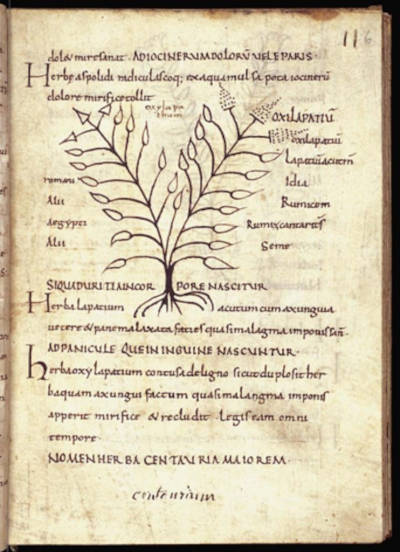 116
dolore mire sanat. AD IOCINERUM DOLORUM VEL EPARIS.
Herbe aspoldi radiculas coq; ex aqua mulsa poca iocineru
dolore mirifice tollit
oxylapa
thium
OXILAPATIUM
oxilapatiu
Lapatiu acutem
romani
Idia
Alii
Rumicem
Aegypti
Rumex cantaris
Alii
Seme
SI QUA DURITIA IN COR PORE NASCITUR
Herba lapatium acutum cum axungia
vetere & pane malaxata facies quasi malagma imponis san
AD PANICULE QUE IN INGUINE NASCUNTUR.
herba oxylapatium contusa deligno sicut duplosit her
baquam axungi factum quasi malangma imponis
apperit mirifice & recludit. Legis eam omni
tempore
NOMEN HERBA CENTAURIA MAIOREM.
centaurium